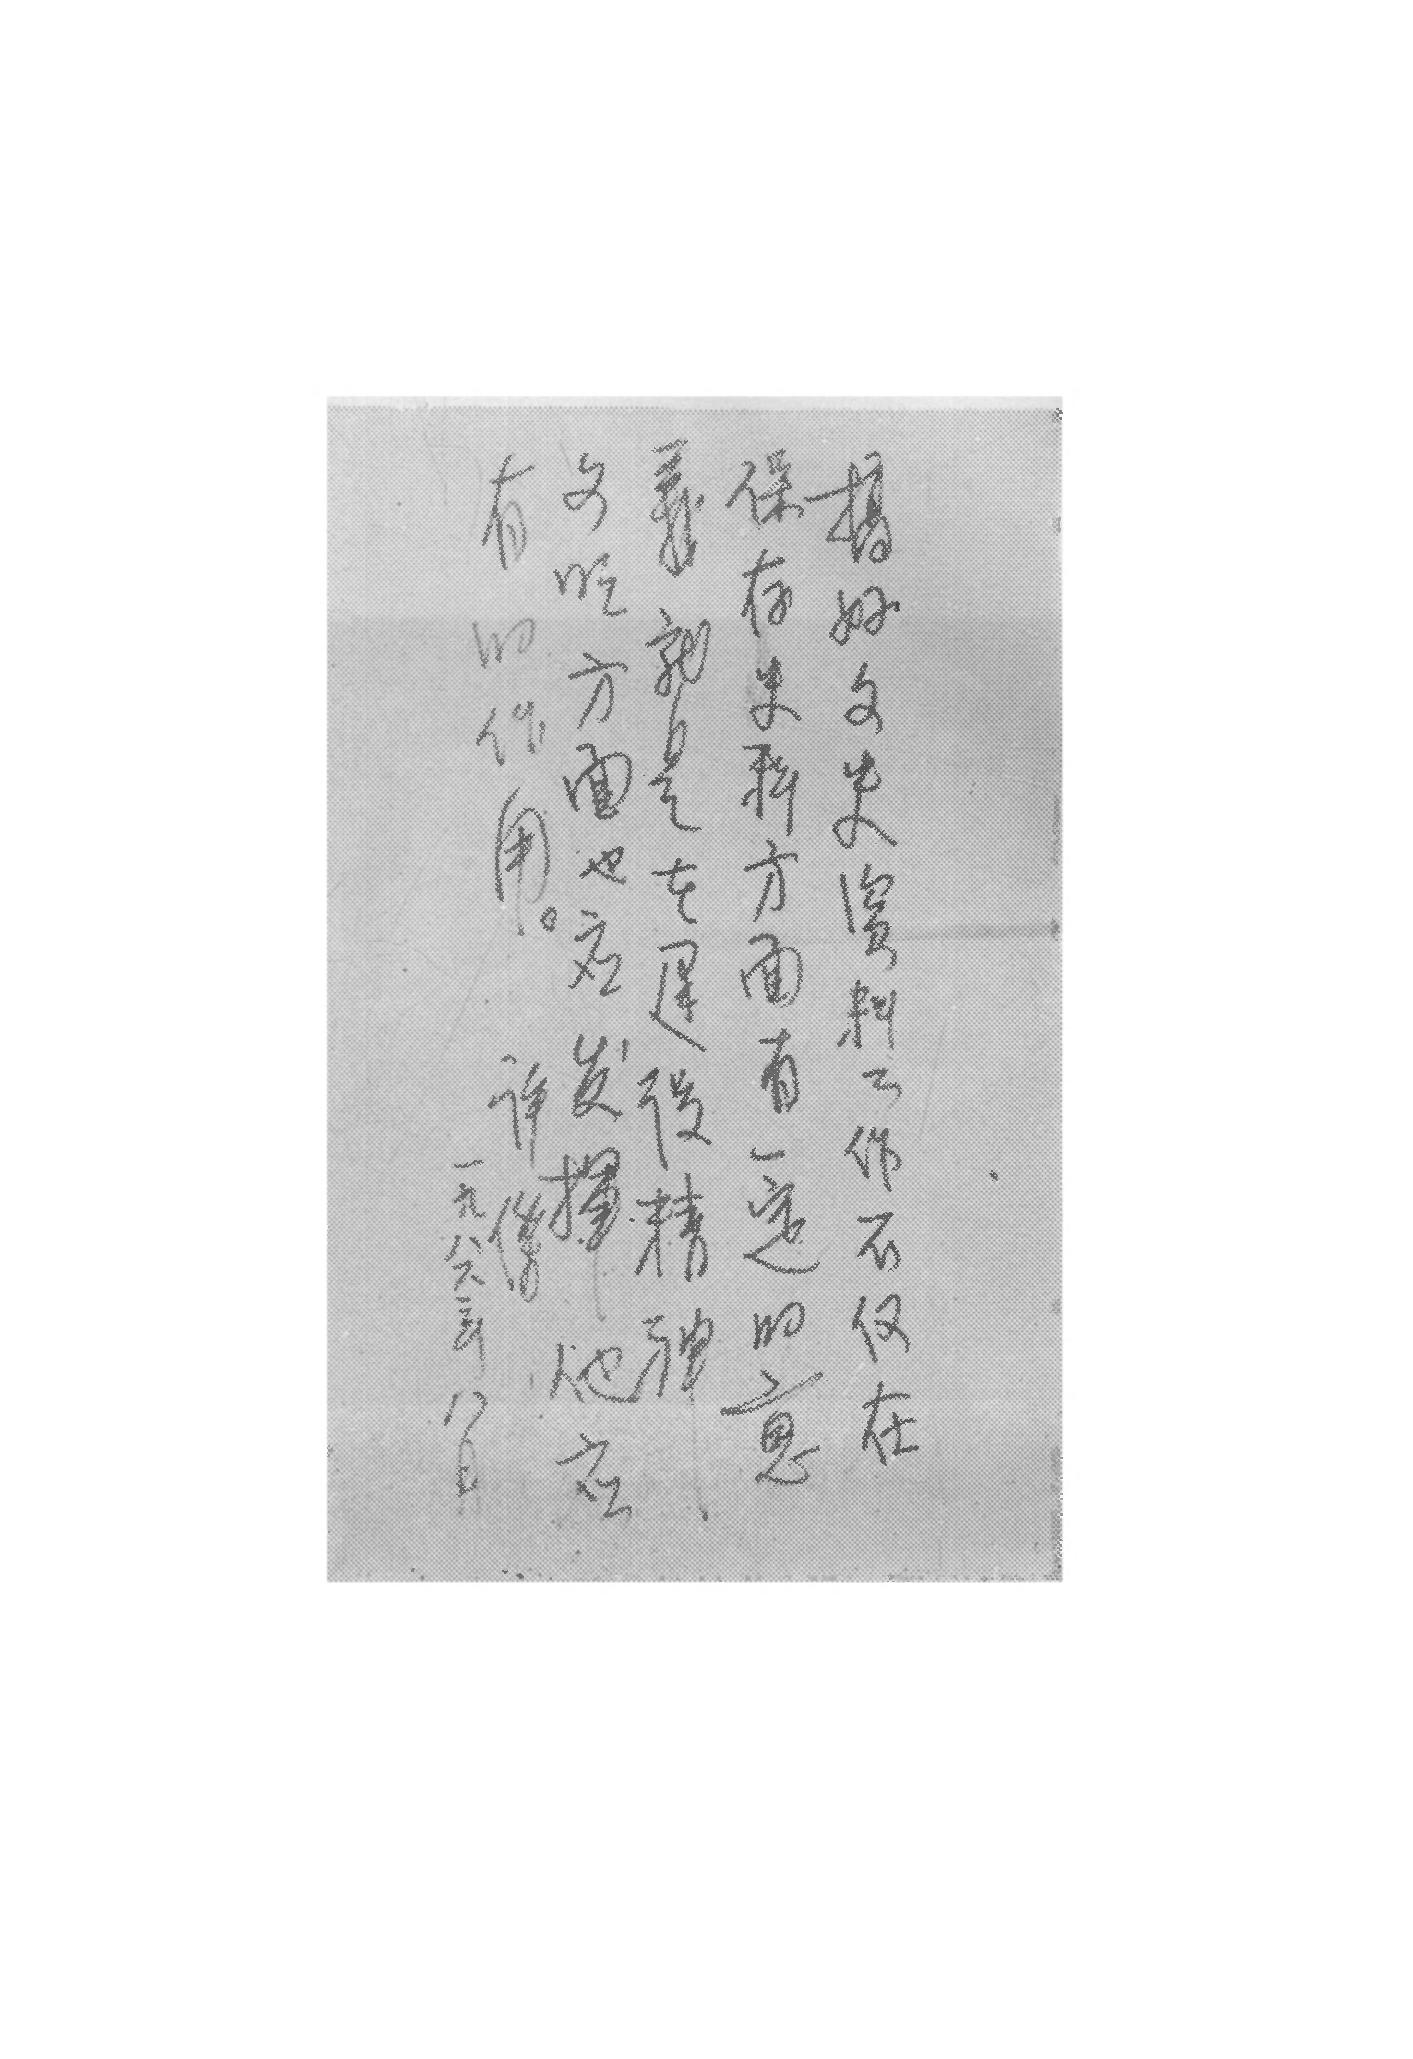 搞好文史资料工作不仅在
保存史料方面有一定的意
義就是在建设精神
文明方面也应发揮他应
有的作用。
许杰
一九八六年八月